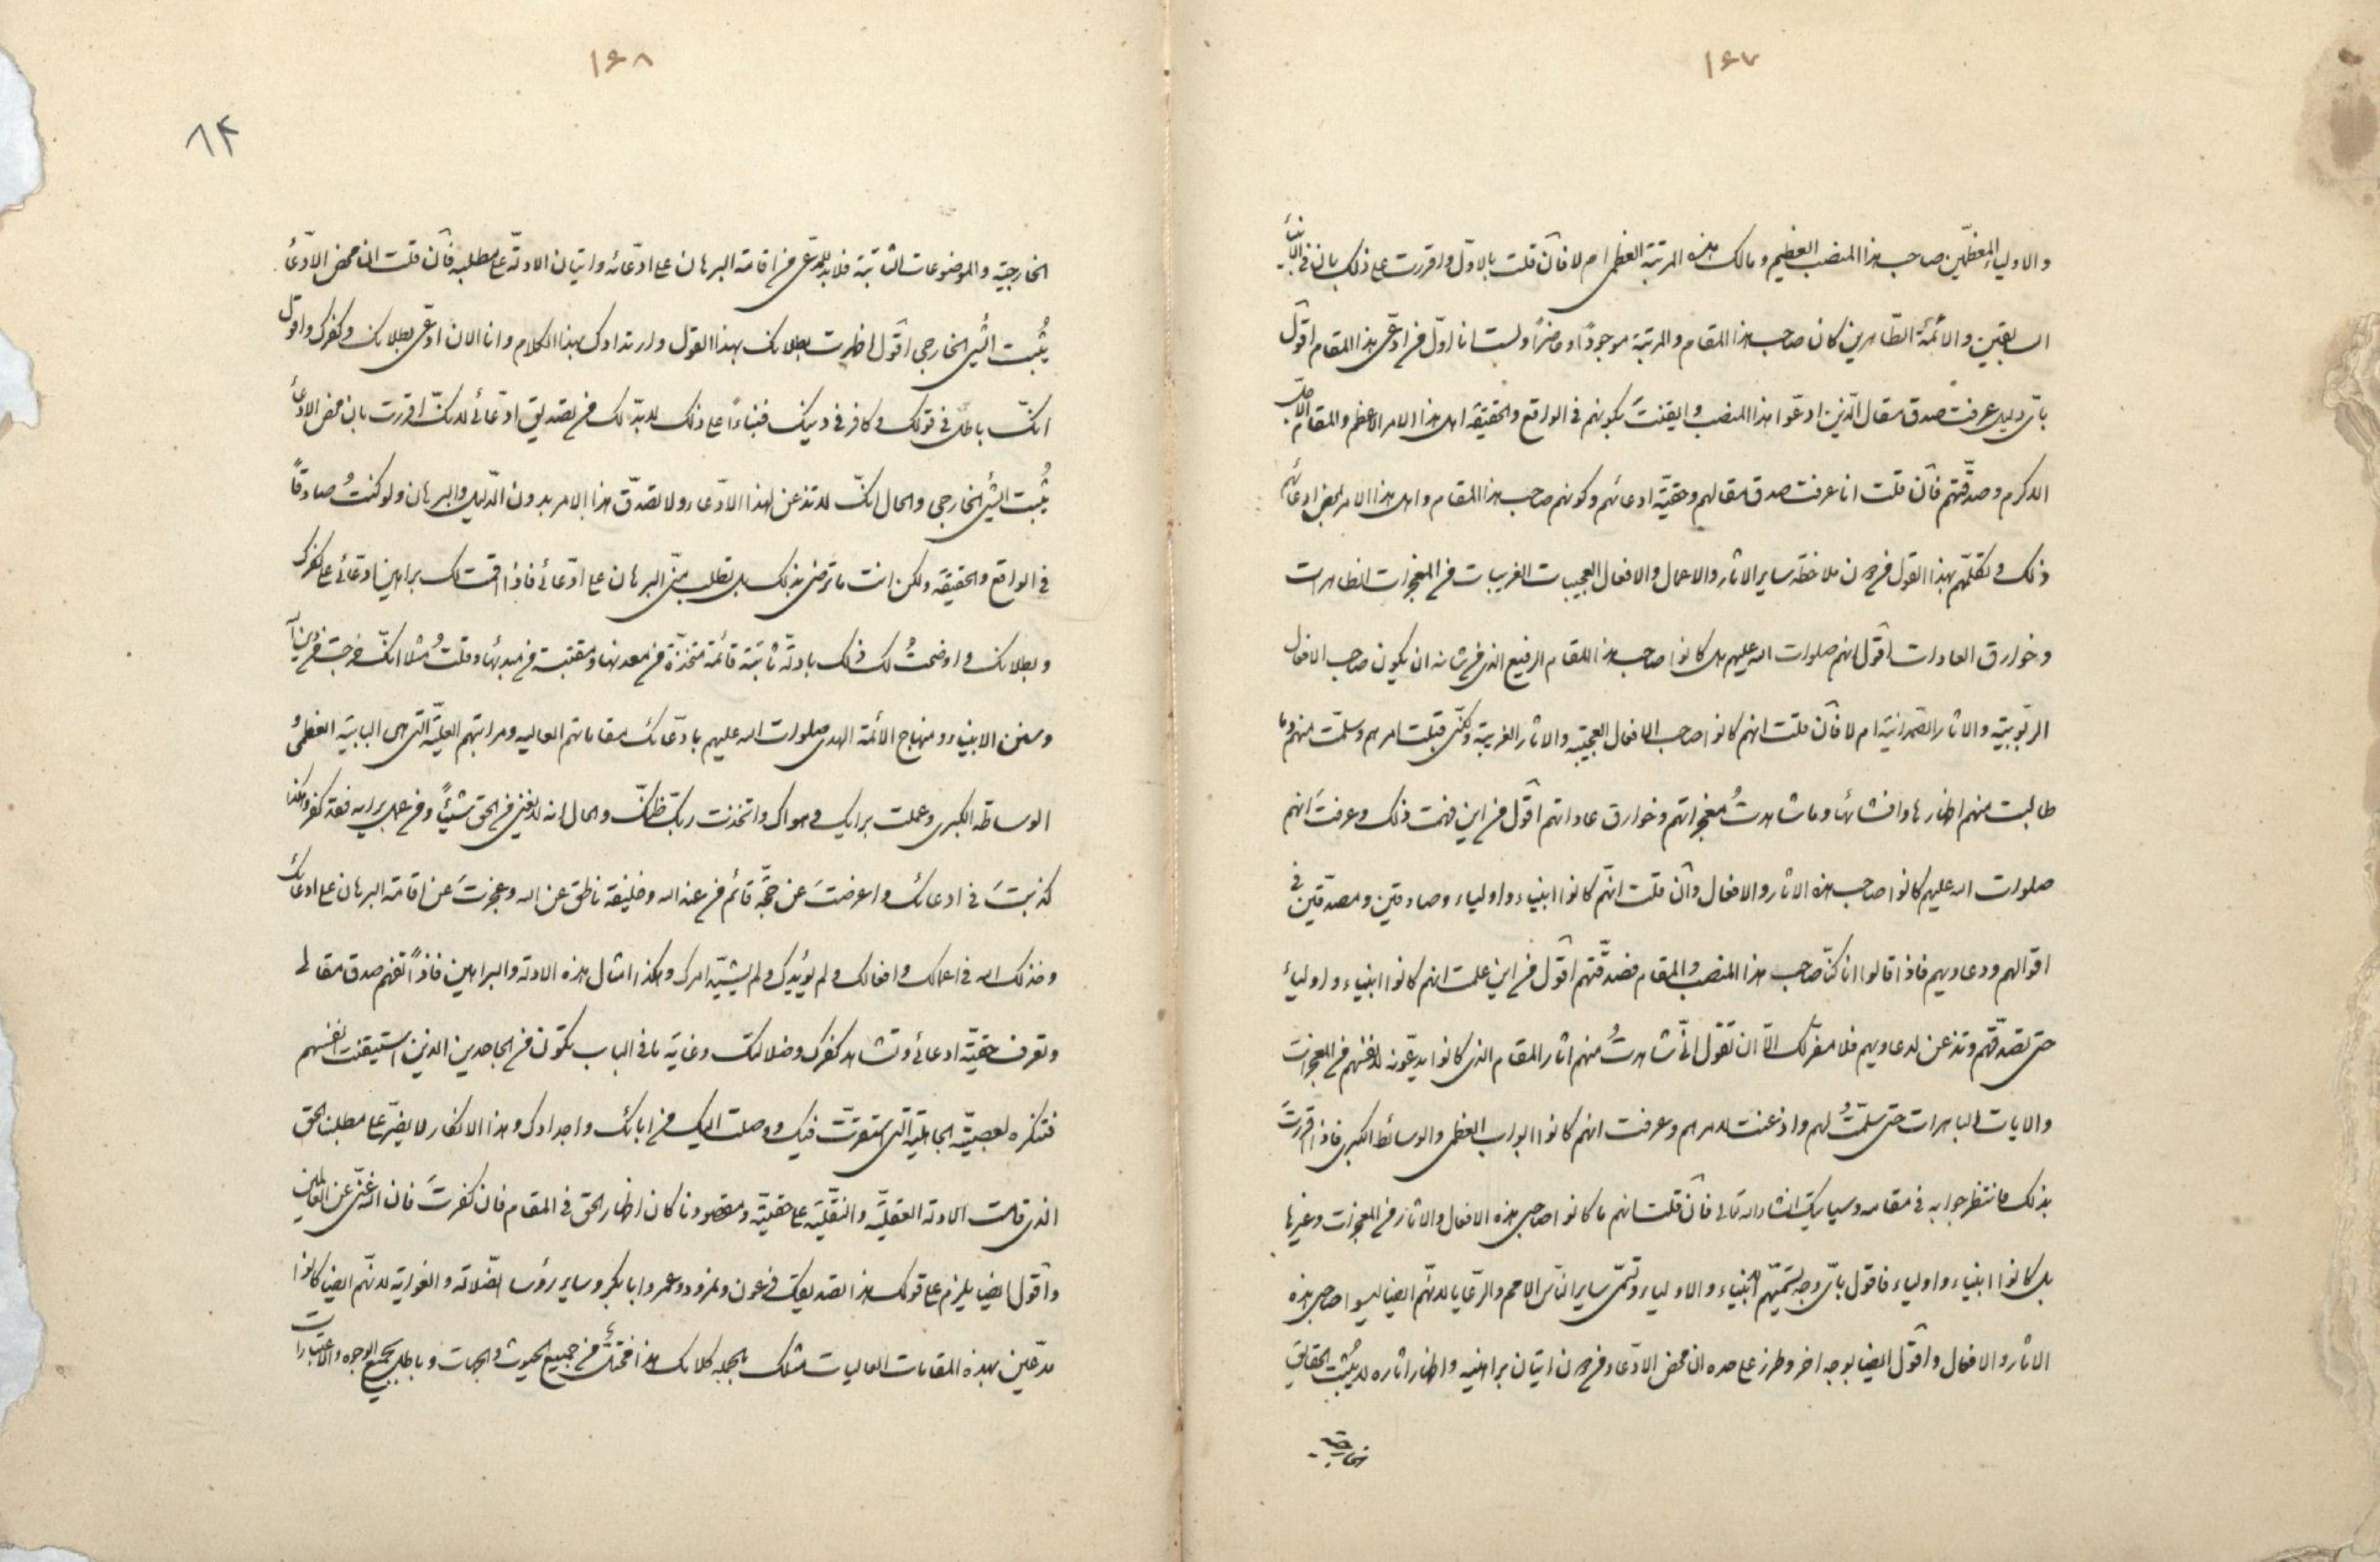 ۱۶۷
والاولیاء المعظمین صاحب هذا المنصب العظیم ومالک هذه المرتبة العظمی ام لا فان قلت بالاول واقررت علی ذلک بان فی الانبیاء
السابقین والائمّة الطاهرین کان صاحب هذا المقام والمرتبة موجوداً وحاضراً ولست انا اوّل من ادّعی هذا المقام اقول
بایّ دلیل عرفت صدق مقال الذین ادعوا هذا المنصب وایقنتَ بکونهم فی الواقع والحقیقة اهل هذا الامر الاعظم والمقام الاجلّ
الاکرم وصدّقتهم فان قلت انا عرفت صدق مقالهم وحقیّة ادعائهم وکونهم صاحب هذا المقام واهل هذا الامر بمحض ادعائهم
ذلک وتکلّمهم بهذا القول من دون ملاحظة سایر الاثار والاعمال والافعال العجیبات الغریبات من المعجزات الظاهرات
وخوارق العادات اقول انهم صلوات الله علیهم هل کانوا صاحب هذا المقام الرفیع الذی من شانه ان یکون صاحب الافعال
الربوبیّة والاثار الصّمدانیّة ام لا فان قلت انهم کانوا صاحب الافعال العجیبة والاثار الغریبة ولکنّی قبلت امرهم وسلّمت منهم وما
طالبت منهم اظهارها وافشائها وما شاهدتُ معجزاتهم وخوارق عاداتهم اقول من این فهمت ذلک وعرفت انهم
صلوات الله علیهم کانوا صاحب هذه الاثار والافعال وان قلت انهم کانوا انبیاء واولیاء وصادقین ومصدّقین فی
اقوالهم ودعاویهم فاذا قالوا انا کنّا صاحب هذا المنصب والمقام فصدّقتهم اقول من این علمت انهم کانوا انبیاء واولیاء
حتی تصدّقهم وتذعن لدعاویهم فلا مفرّ لک الّا ان تقول انّی شاهدتُ منهم اثار المقام الذی کانوا یدعونه لانفسهم من المعجزات
والایات الباهرات حتی سلّمتُ لهم واذعنت لامرهم وعرفت انهم کانوا ابواب العظمی والوسائط الکبری فاذا اقررتَ
بذلک فانتظر جوابه فی مقامه وسیاتیک انشاء الله تعالی فان قلت انهم ما کانوا صاحبی هذه الافعال والاثار من المعجزات وغیرها
بل کانوا انبیاء واولیاء فاقول بایّ وجه تسمّیهم الانبیاء والاولیاء وتسمّی سایر الناس الامم والرعایا لانّهم ایضا لیسوا صاحبی هذه
الاثار والافعال واقول ایضا بوجه اخر وطرز علی حده ان محض الادّعاء من دون اتیان براهینه واظهار اثاره لا یثبت الحقایق
الخارجیّة
۱۶۸
۸۴
الخارجیّة والموضوعات الثابتة فلا بدّ للمدّعی من اقامة البرهان علی ادّعائه واتیان الادلّة علی مطلبه فان قلت ان محض الادّعاء
یُثبت الشیء الخارجی اقول اظهرت بطلانک بهذا القول وارتدادک بهذا الکلام وانا الان ادّعی بطلانک وکفرک واقول
انّک باطل فی قولک وکافر فی دینک فبناءاً علی ذلک لابدّ لک من تصدیق ادّعائی لانک اقررت بان محض الادّعاء
یُثبت الشیء الخارجی والحال انّک لا تذعن لهذا الادّعاء ولا تصدّق هذا الامر بدون الدلیل والبرهان ولو کنتُ صادقاً
فی الواقع والحقیقة ولکن انت ما ترضی بذلک بل تطلب منّی البرهان علی ادّعائی فاذا اقمت لک براهین ادعائی علی کفرک
وبطلانک واوضحتُ لک ذلک بادلّة ثابتة قائمة متخذة من معدنها ومقتبسة من مبدئها وقلتُ مثلا انّک خرجت من دین الله
وسنن الانبیاء ومنهاج الائمة الهدی صلوات الله علیهم بادّعائک مقاماتهم العالیة ومراتبهم العلیّة التی هی البابیّة العظمیُ
الوساطة الکبری وعملت برایک وهواک واتخذت ربّک ظنّک والحال انه لا یغنی من الحق شیئاً ومن عمل برایه فقد کفر وهکذا
کذبتَ فی ادعائک واعرضتَ عن حجّة قائم من عند الله وخلیفة ناطق عن الله وعجزتَ عن اقامة البرهان علی ادعائک
وخذلک الله فی اعمالک وافعالک ولم یؤیدک ولم یشیّد امرک وهکذا امثال هذه الادلة والبراهین فاذاً تفهم صدق مقالی
وتعرف حقیّة ادعائی وتشاهد کفرک وضلالتک وغایة ما فی الباب تکون من الجاحدین الذین استیقنت انفسهم
فتنکره لعصبیّة الجاهلیّة التی استقرّت فیک ووصلت الیک من ابائک واجدادک وهذا الانکار لا یضرّ علی مطلبنا الحق
الذی قامت الادلة العقلیّة والنقلیّة علی حقیّته ومقصودنا کان اظهار الحق فی المقام فان کفرتَ فان الله غنی عن العالمین
واقول ایضا یلزم علی قولک هذا تصدیقک فرعون ونمرود وعمر وابابکر وسایر رؤسا الضّلالة والغوایة لانّهم ایضا کانوا
مدّعین بهذه المقامات العالیات مثلک بالجمله کلامک هذا من جمیع الحیوث والجهات وباطل بجمیع الوجوه والاعتبارات